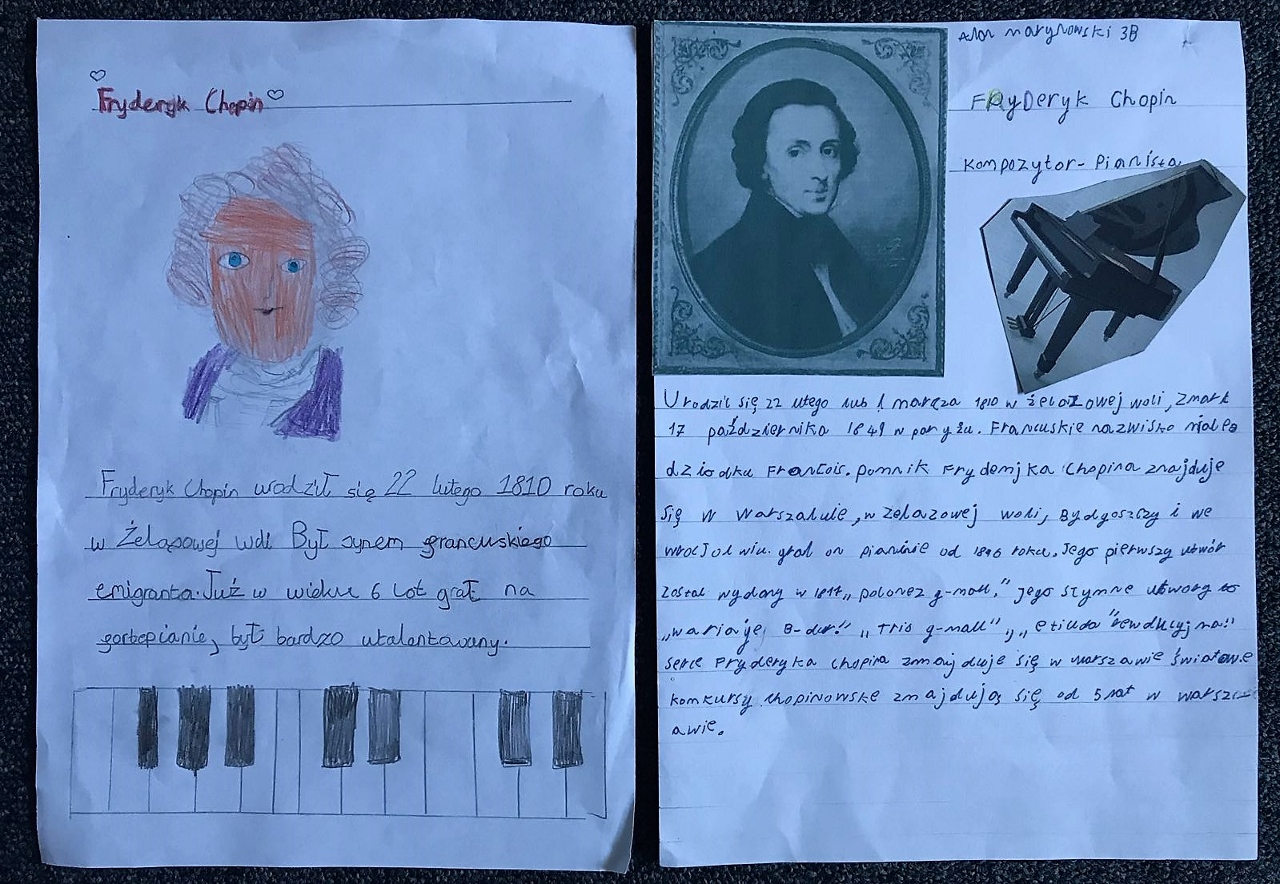 Fryderyk Chopin
Fryderyk Chopin urodził się 22 lutego 1810 roku
w Żelazowej Woli Był synem francuskiego
emigranta. Już w wieku 6 lat grał na
fortepianie, był bardzo utalentowany.
Marynowski 3B
FRyDeryk Chopin
Kompozytor - Pianista
Urodził się 22 lutego lub 1 marcza 1810 w żelazowej woli, zmarł
17 października 1849 w paryżu. Francuskie nazwisko
dziadku Francois. pomnik Chopina znajduje
się w, w żelazowej woli, Bydgoszczy i we
grał on pianinie od roku. Jego pierwszy utwór
został wydany w 1817 „polonez g-moll." jego słynne utwory to
„wariaje B-dur" „Trio g-moll", „etiuda
serce Fryderyka chopina się w warszawie światowe
konkursy chopinowske znajdują się od 5 lat w warsz
awie.